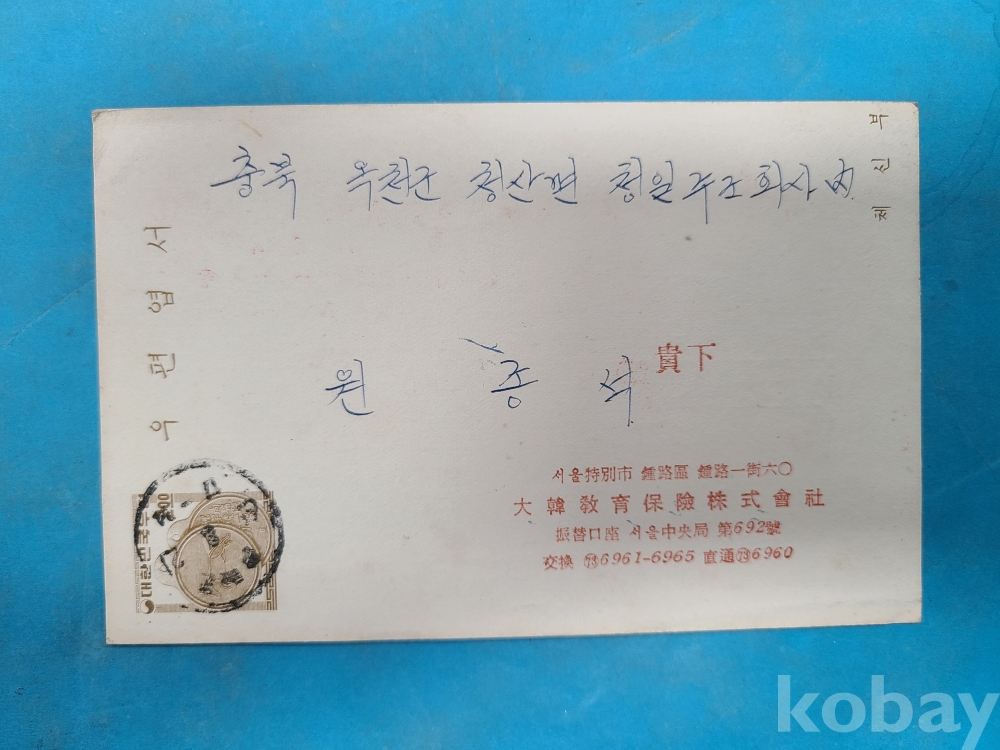 체 신 부
충북 옥천군 청산면 청일주조회사 內
우 편 엽 서
원 종 석 貴下
서울特別市 鍾路區 鍾路一街六〇
大韓敎育保險株式會社
振替口座 서울中央局 第692號
交換 73 6961-6965 直通 73 6960
대한민국우표
kobay